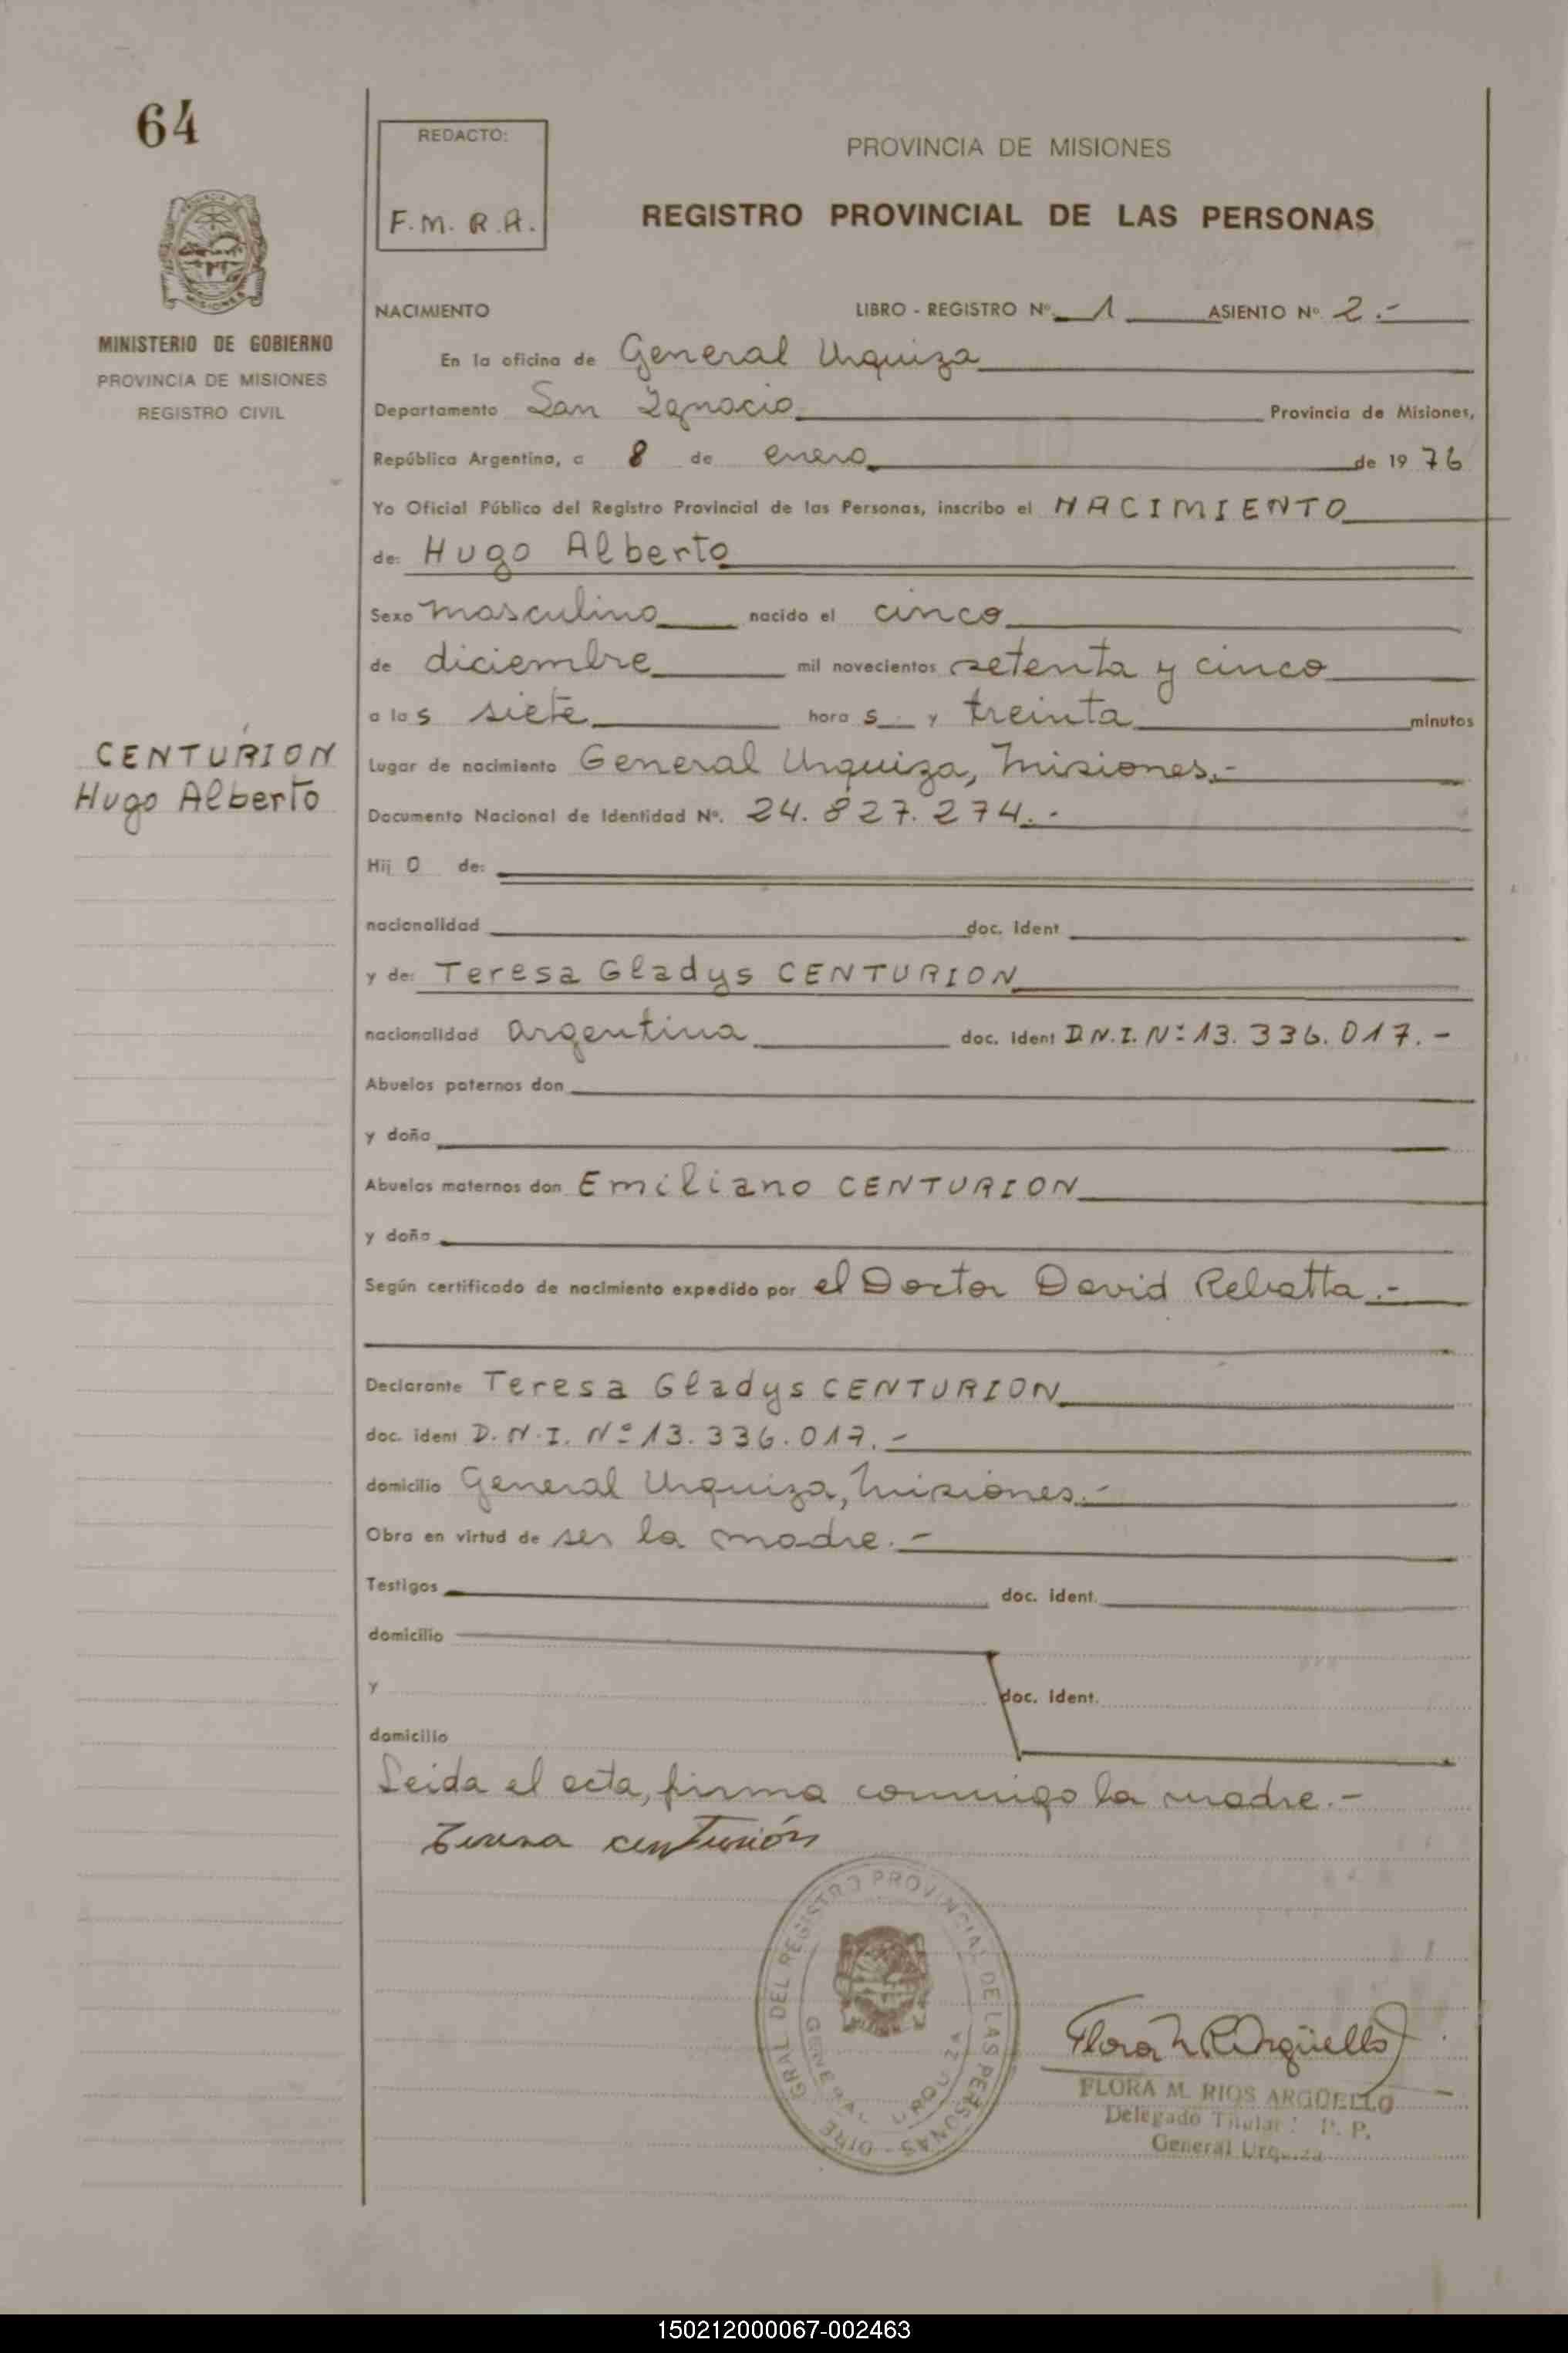 64
REDACTO:
F.M.R.A.
PROVINCIA DE MISIONES
REGISTRO PROVINCIAL DE LAS PERSONAS
MINISTERIO DE GOBIERNO
PROVINCIA DE MISIONES
REGISTRO CIVIL
NACIMIENTO LIBRO - REGISTRO Nº 1 ASIENTO Nº 2.-
En la oficina de General Urquiza
Departamento San Ignacio Provincia de Misiones,
República Argentina, a 8 de enero de 1976
Yo Oficial Público del Registro Provincial de las Personas, inscribo el NACIMIENTO
de: Hugo Alberto
Sexo masculino nacido el cinco
de diciembre mil novecientos setenta y cinco
a las siete horas y treinta minutos
CENTURION
Hugo Alberto
Lugar de nacimiento General Urquiza, Misiones.-
Documento Nacional de Identidad Nº. 24.827.274.-
Hijo de:
nacionalidad doc. ident
y de: Teresa Gladys CENTURION
nacionalidad argentina doc. ident D.N.I. Nº 13.336.017.-
Abuelos paternos don
y doña
Abuelos maternos don Emiliano CENTURION
y doña
Según certificado de nacimiento expedido por el Doctor David Rebatta.-
Declarante Teresa Gladys CENTURION
doc. ident D.N.I. Nº 13.336.017.-
domicilio General Urquiza, Misiones.-
Obra en virtud de ser la madre.-
Testigos doc. ident.
domicilio
y doc. ident.
domicilio
Leida el acta, firma conmigo la madre.-
Teresa centurión
DIRE GRAL DEL REGISTRO PROVINCIAL DE LAS PERSONAS -
GENERAL URQUIZA
Flora M R Argüello
FLORA M. RIOS ARGUELLO
Delegado Titular P. P.
General Urquiza
150212000067-002463